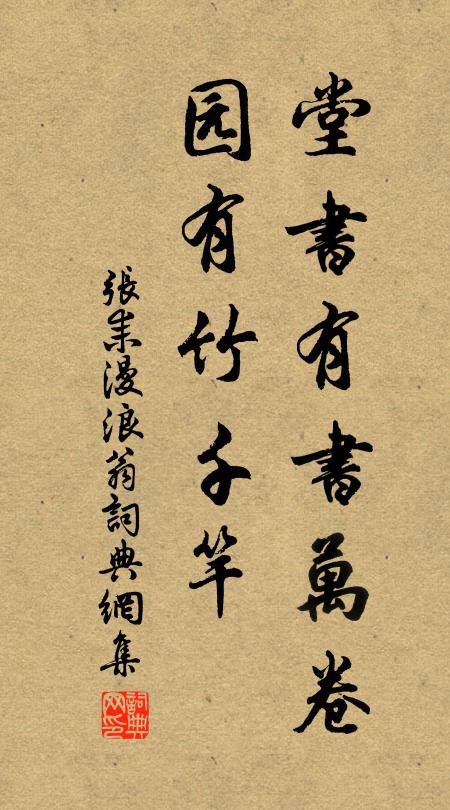 堂書有書萬卷
园有竹千竿
張耒漫浪翁詞典網集
詞典網印